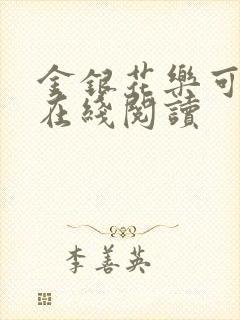 金銀花樂可
在綫閱讀
李善英